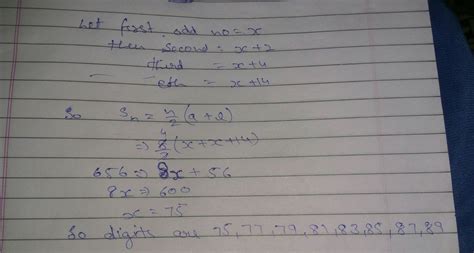 Let first odd no = x
then second = x+2
third = x+4
eth = x+14
So Sn = n/2 (a+l)
⇒ 8/2 (x+x+14) 4
656 ⇒ 8x + 56
8x ⇒ 600
x = 75
So digits are 75, 77, 79, 81, 83, 85, 87, 89